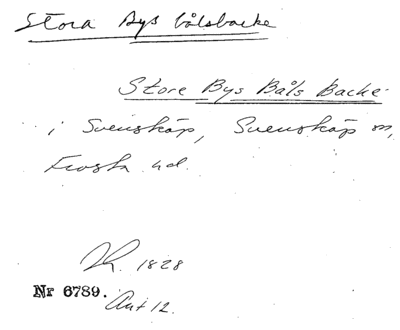 Stora Bys bålsbacke
Store Bys Båls Backe
i Svenskåp, Svenskåp sn,
Frosta hd.
1828
Nr 6789.
Ant 12.